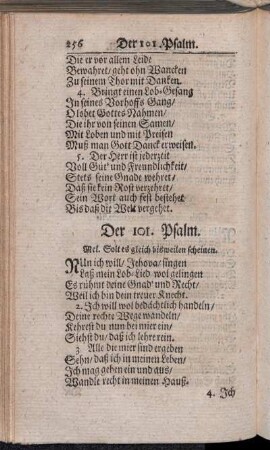 256 Der 101. Psalm.
Die er vor allem Leide
Bewahret/ geht ohn Wancken
Zu seinem Thor mit Dancken.
4. Bringt einen Lob-Gesang
In seines Vorhoffs Gang/
O lobet Gottes Nahmen/
Die ihr von seinen Samen/
Mit Loben und mit Preisen
Muß man Gott Danck erweisen.
5. Der Herr ist jederzeit
Voll Güt' und Freundlichkeit/
Stets seine Gnade wehret/
Daß sie kein Rost verzehret/
Sein Wort auch fest bestehet
Bis daß die Welt vergehet.
Der 101. Psalm.
Mel. Solt es gleich bisweilen scheinen.
NUn ich will/ Jehova/ singen
Laß mein Lob-Lied wol gelingen
Es rühmt deine Gnad' und Recht/
Weil ich bin dein treuer Knecht.
2. Ich will wol bedächtlich handeln/
Deine rechte Wege wandeln/
Kehrest du nun bei mir ein/
Siehst du/ daß ich lehre rein.
3 Alle die mir sind ergeben
Sehn/ daß ich in meinen Leben/
Ich mag gehen ein und aus/
Wandle recht in meinen Hauß.
4. Ich